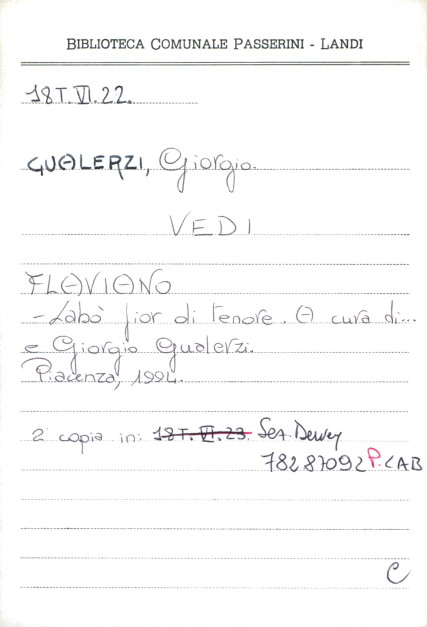 BIBLIOTECA COMUNALE PASSERINI - LANDI
18T.VI.22.
GUALERZI, Giorgio.
VEDI
FLAVIANO
- Labò fior di tenore. A cura di...
e Giorgio Gualerzi.
Piacenza, 1994.
2ª copia in: 18T.VI.23. Sez. Dewey
782 87092 P.LAB
C